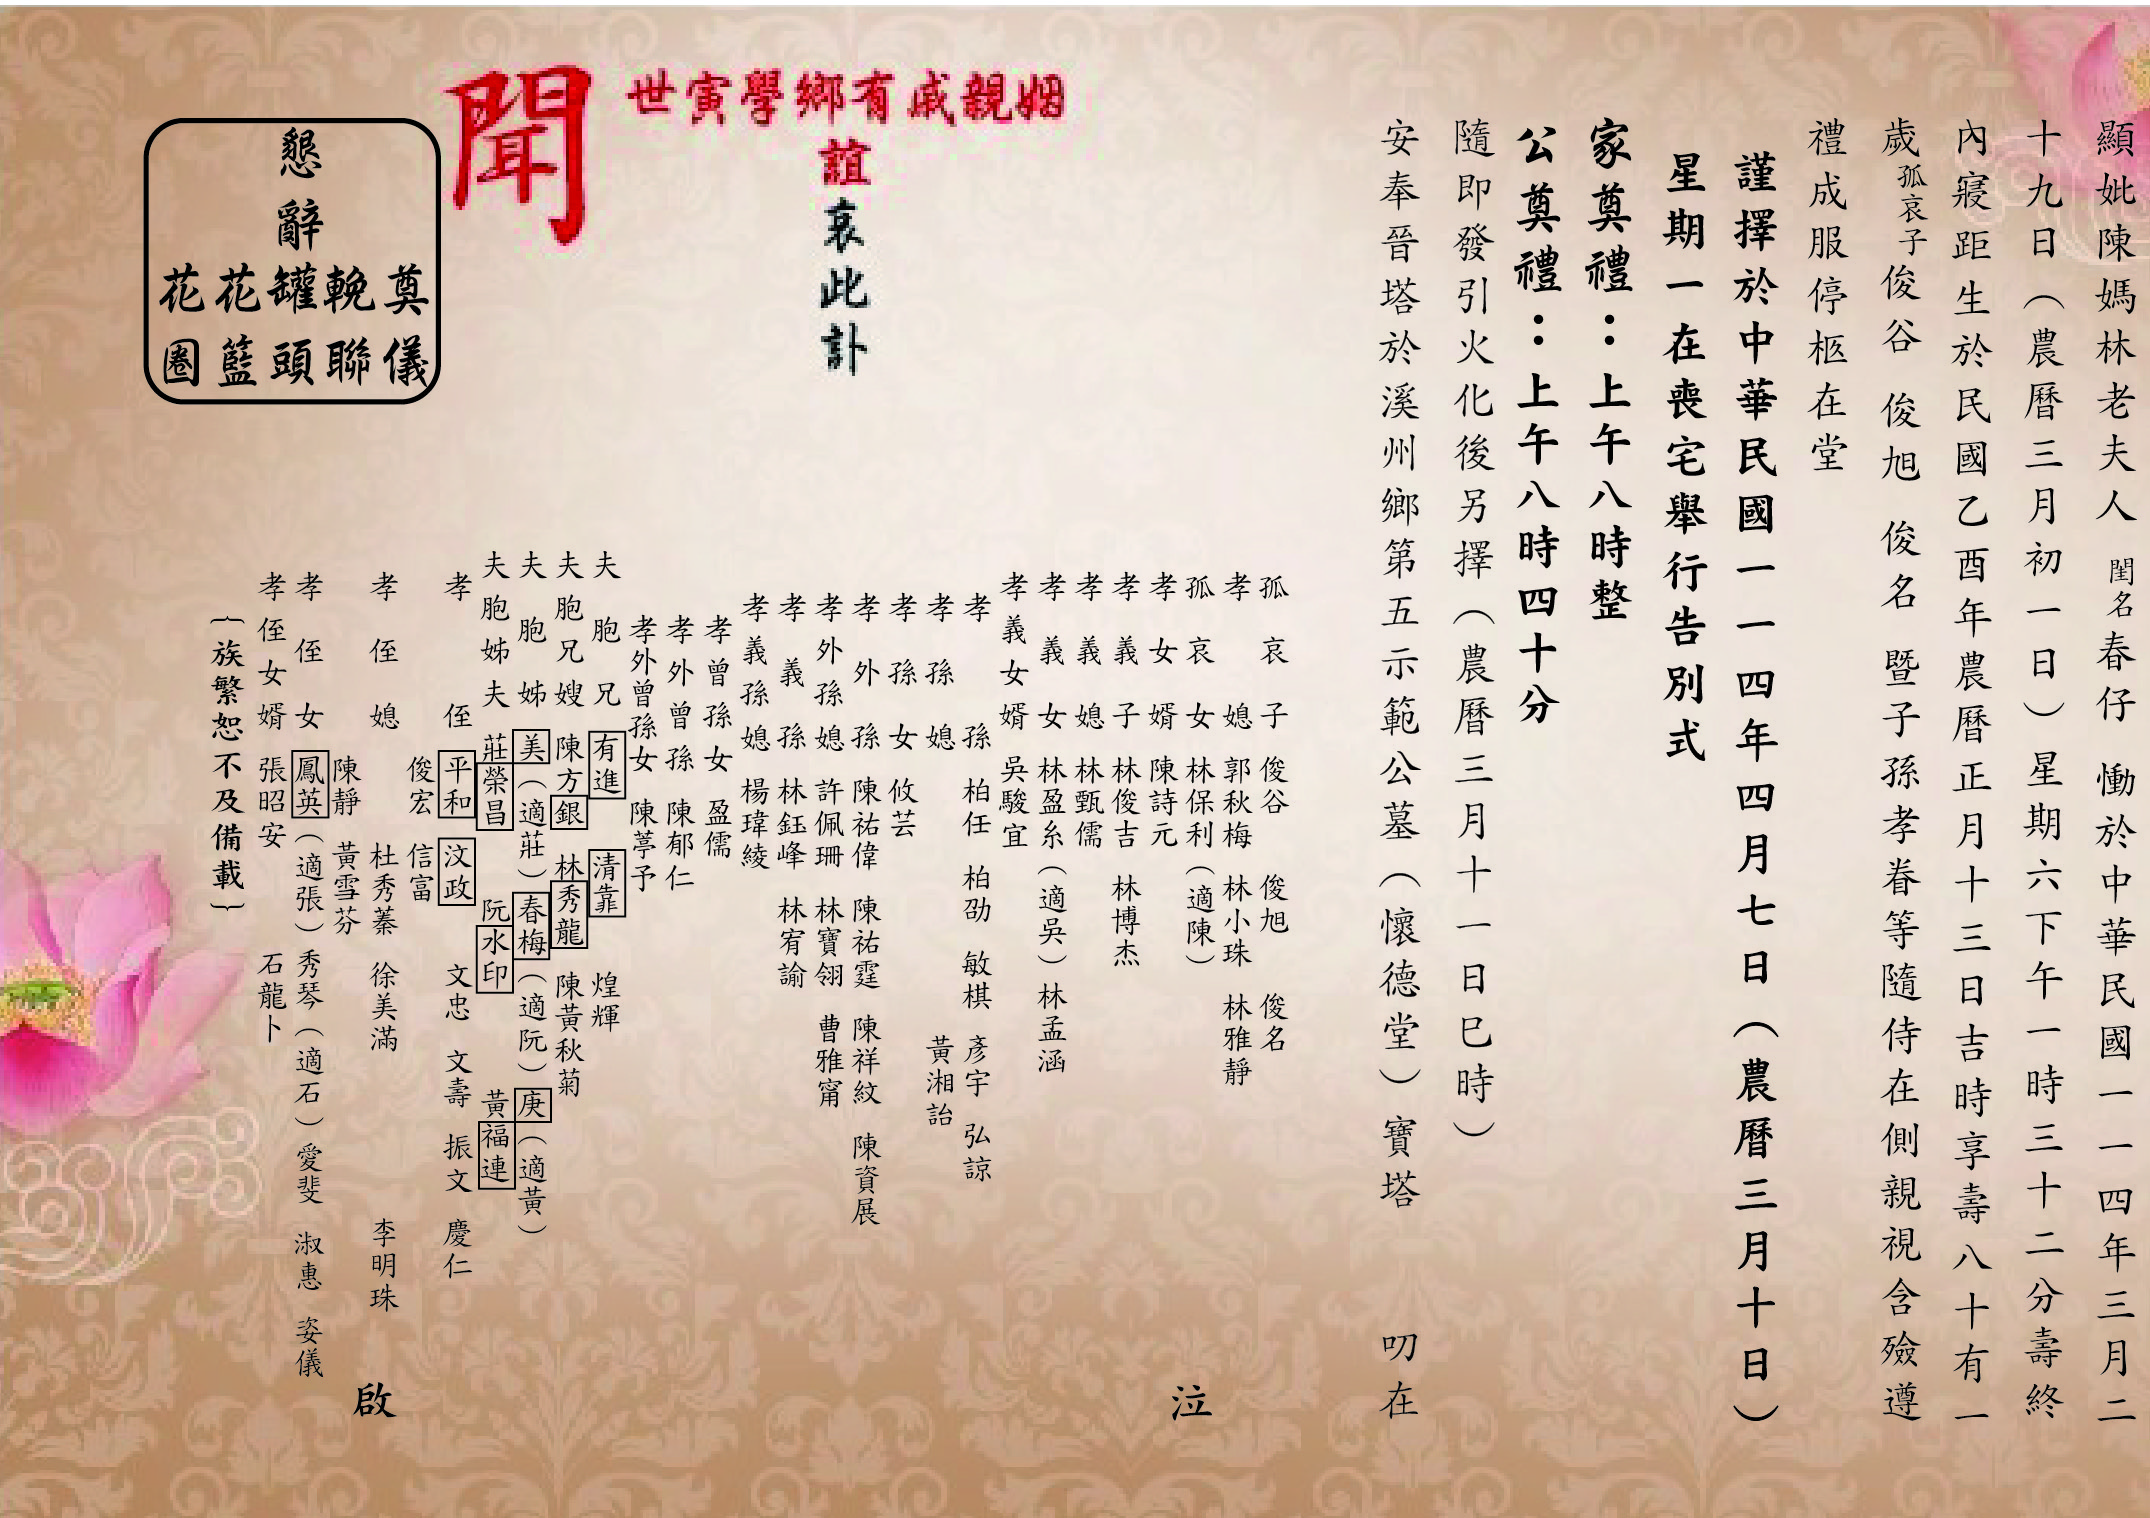 顯妣陳媽林老夫人 閨名春仔 慟於中華民國一一四年三月二
十九日（農曆三月初一日）星期六下午一時三十二分壽終
內寢距生於民國乙酉年農曆正月十三日吉時享壽八十有一
歲孤哀子俊谷 俊旭 俊名 暨子孫孝眷等隨侍在側親視含殮遵
禮成服停柩在堂
謹擇於中華民國一一四年四月七日（農曆三月十日）
星期一在喪宅舉行告別式
家奠禮：上午八時整
公奠禮：上午八時四十分
隨即發引火化後另擇（農曆三月十一日巳時）
安奉晉塔於溪州鄉第五示範公墓（懷德堂）寶塔 叨在
姻親戚有鄉學寅世
誼哀此訃
聞
孤哀子 俊谷 俊旭 俊名
孝媳 郭秋梅 林小珠 林雅靜
孤哀女 林保利（適陳）
孝女婿 陳詩元
孝義子 林俊吉 林博杰
孝義媳 林甄儒
孝義女 林盈糸（適吳）林孟涵
孝義女婿 吳駿宜
孝孫 柏任 柏劭 敏棋 彥宇 弘諒
孝孫媳 黃湘詒
孝孫女 攸芸
孝外孫 陳祐偉 陳祐霆 陳祥紋 陳資展
孝外孫媳 許佩珊 林寶翎 曹雅甯
孝義孫 林鈺峰 林宥諭
孝義孫媳 楊瑋綾
孝曾孫女 盈儒
孝外曾孫 陳郁仁
孝外曾孫女 陳葶予
夫胞兄 有進 清靠 煌輝
夫胞兄嫂 陳方銀 林秀龍 陳黃秋菊
夫胞姊 美（適莊）春梅（適阮）庚（適黃）
夫胞姊夫 莊榮昌 阮水印 黃福連
孝侄 平和 汶政 文忠 文壽 振文 慶仁
俊宏 信富
孝侄媳 杜秀蓁 徐美滿 李明珠
陳靜 黃雪芬
孝侄女 鳳英（適張）秀琴（適石）愛斐 淑惠 姿儀
孝侄女婿 張昭安 石龍卜
｛族繁恕不及備載｝
泣
啟
懇辭
奠儀
輓聯
罐頭
花籃
花圈